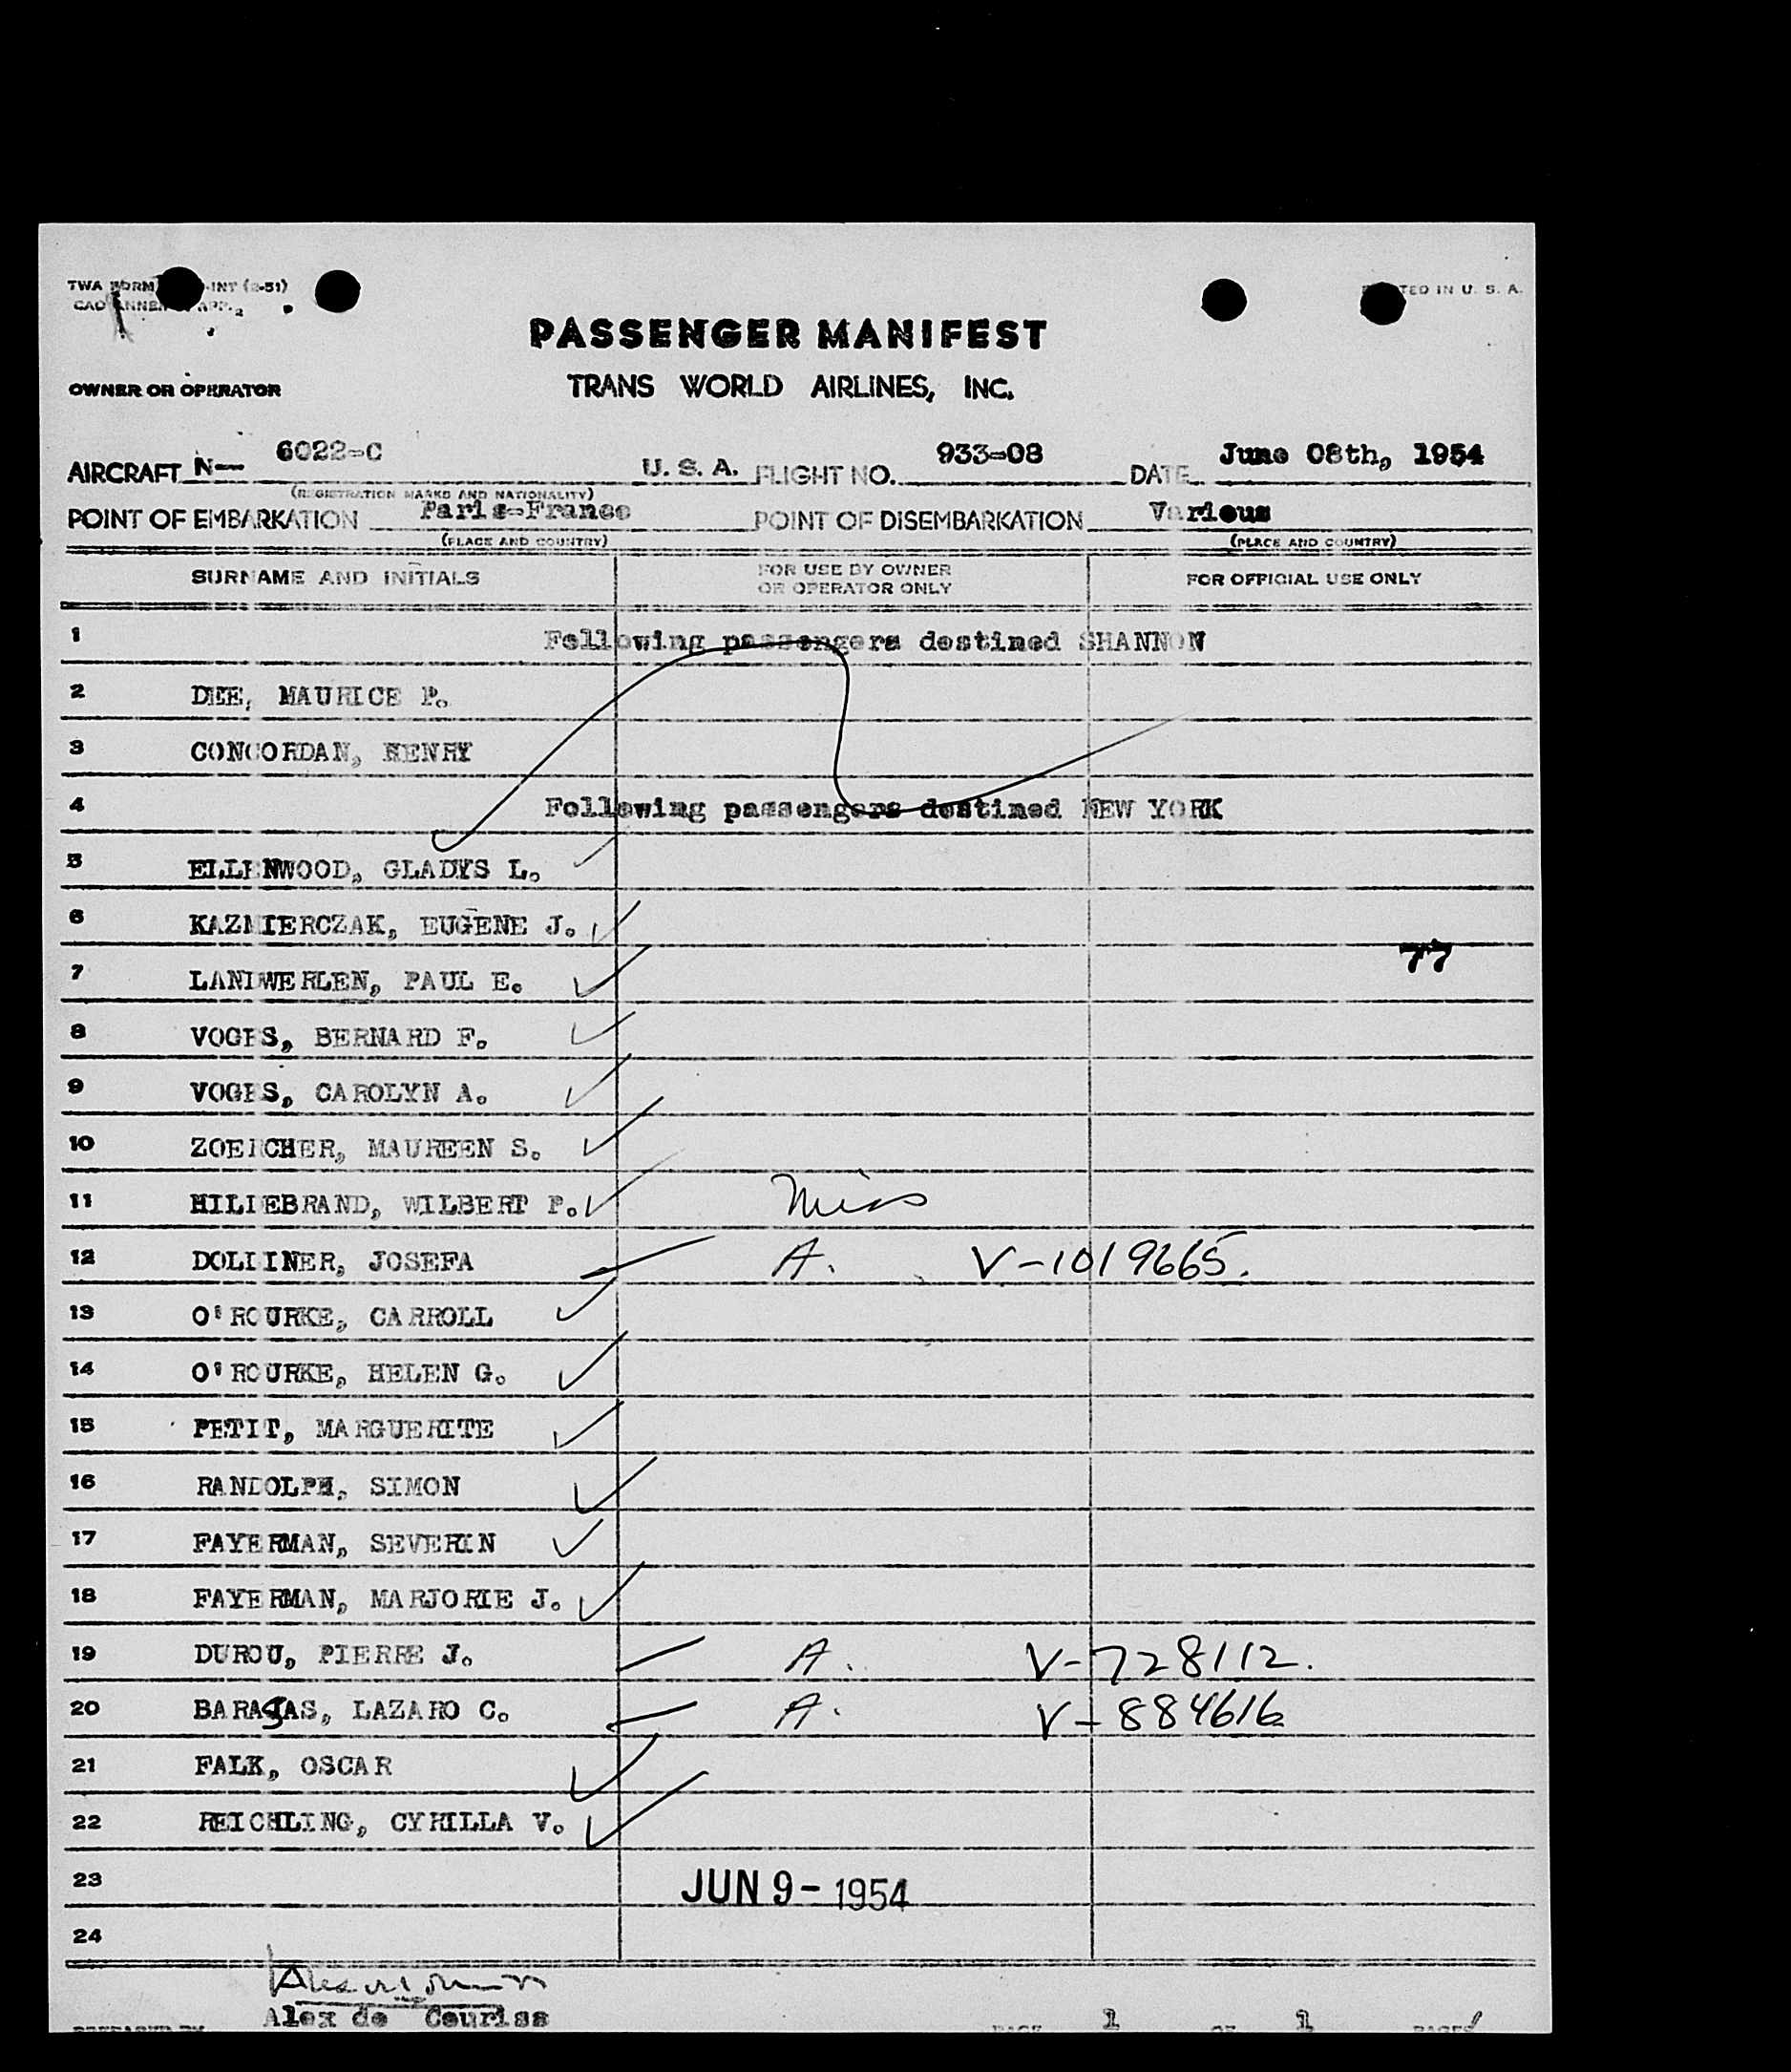 TWA FORM -INT (2-51)
PRINTED IN U. S. A.
PASSENGER MANIFEST
OWNER OR OPERATOR TRANS WORLD AIRLINES, INC.
AIRCRAFT N— 6022-C U. S. A. FLIGHT NO. 933-08 DATE June 08th, 1954
(REGISTRATION MARKS AND NATIONALITY)
POINT OF EMBARKATION Paris-France POINT OF DISEMBARKATION Various
(PLACE AND COUNTRY) (PLACE AND COUNTRY)
SURNAME AND INITIALS FOR USE BY OWNER OR OPERATOR ONLY FOR OFFICIAL USE ONLY
1 Following passengers destined SHANNON
2 DEE, MAURICE P.
3 CONCORDAN, HENRY
4 Following passengers destined NEW YORK
5 ELLENWOOD, GLADYS L.
6 KAZMIERCZAK, EUGENE J.
77
7 LANDWERLEN, PAUL E.
8 VOGES, BERNARD F.
9 VOGES, CAROLYN A.
10 ZOERCHER, MAUREEN S.
11 HILDEBRAND, WILBERT P. Miss
12 DOLLINER, JOSEFA A. V-1019665.
13 O'ROURKE, CARROLL
14 O'ROURKE, HELEN G.
15 PETIT, MARGUERITE
16 RANDOLPH, SIMON
17 FAYERMAN, SEVERIN
18 FAYERMAN, MARJORIE J.
19 DUROU, PIERRE J. A. V-728112.
20 BARAJAS, LAZARO C. A. V-884616
21 FALK, OSCAR
22 REICHLING, CYRILLA V.
23 JUN 9 - 1954
24
Alex de Couriss
PREPARED BY PAGE 1 OF 1 PAGES